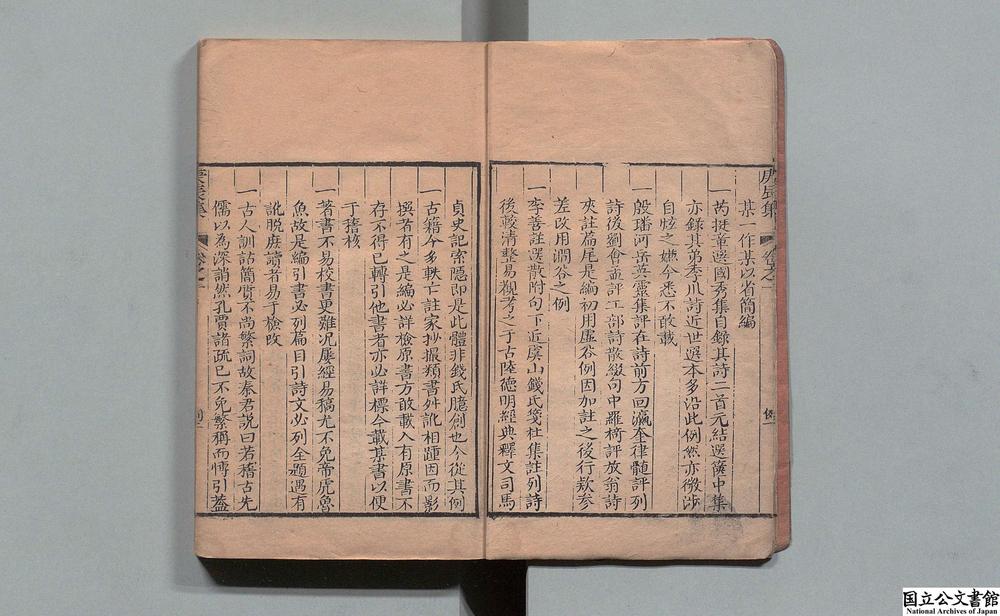 庚辰集
某一作某以省簡編
一芮挺章選國秀集自錄其詩二首元結選篋中集
亦錄其弟季川詩近世選本多沿此例然亦微涉
自炫之嫌今悉不敢載
一殷璠河岳英靈集評在詩前方回瀛奎律髓評列
詩後劉會孟評工部詩散綴句中羅椅評放翁詩
夾註篇尾是編初用虛谷例因加註之後行欵參
差改用澗谷之例
一李善註選散附句下近虞山錢氏箋杜集註列詩
後較清整易觀考之于古陸德明經典釋文司馬
貞史記索隱即是此體非錢氏臆創也今從其例
一古籍今多軼亡註家抄撮類書舛訛相踵因而影
撰者有之是編必詳檢原書方敢載入有原書不
存不得已轉引他書者亦必詳標今載某書以便
于稽核
一著書不易校書更難况屢經易稿尤不免帝虎魯
魚故是編引書必列篇目引詩文必列全題遇有
訛脫庶讀者易于檢改
一古人訓詁簡質不尚繁詞故秦君說曰若稽古尤
儒以為深誚然孔賈諸疏已不免繁稱而慱引葢
国立公文書館
National Archives of Japan